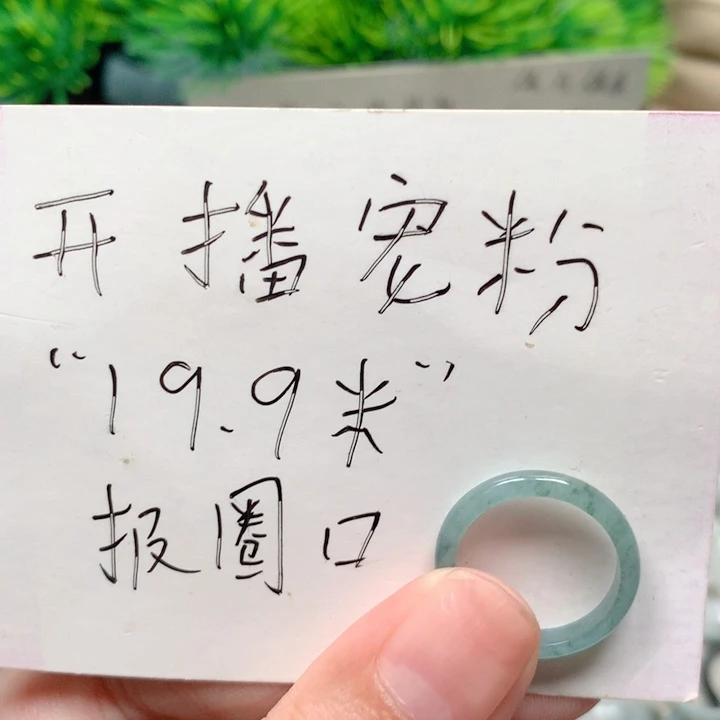 开播宠粉
“19.9米”
报圈口